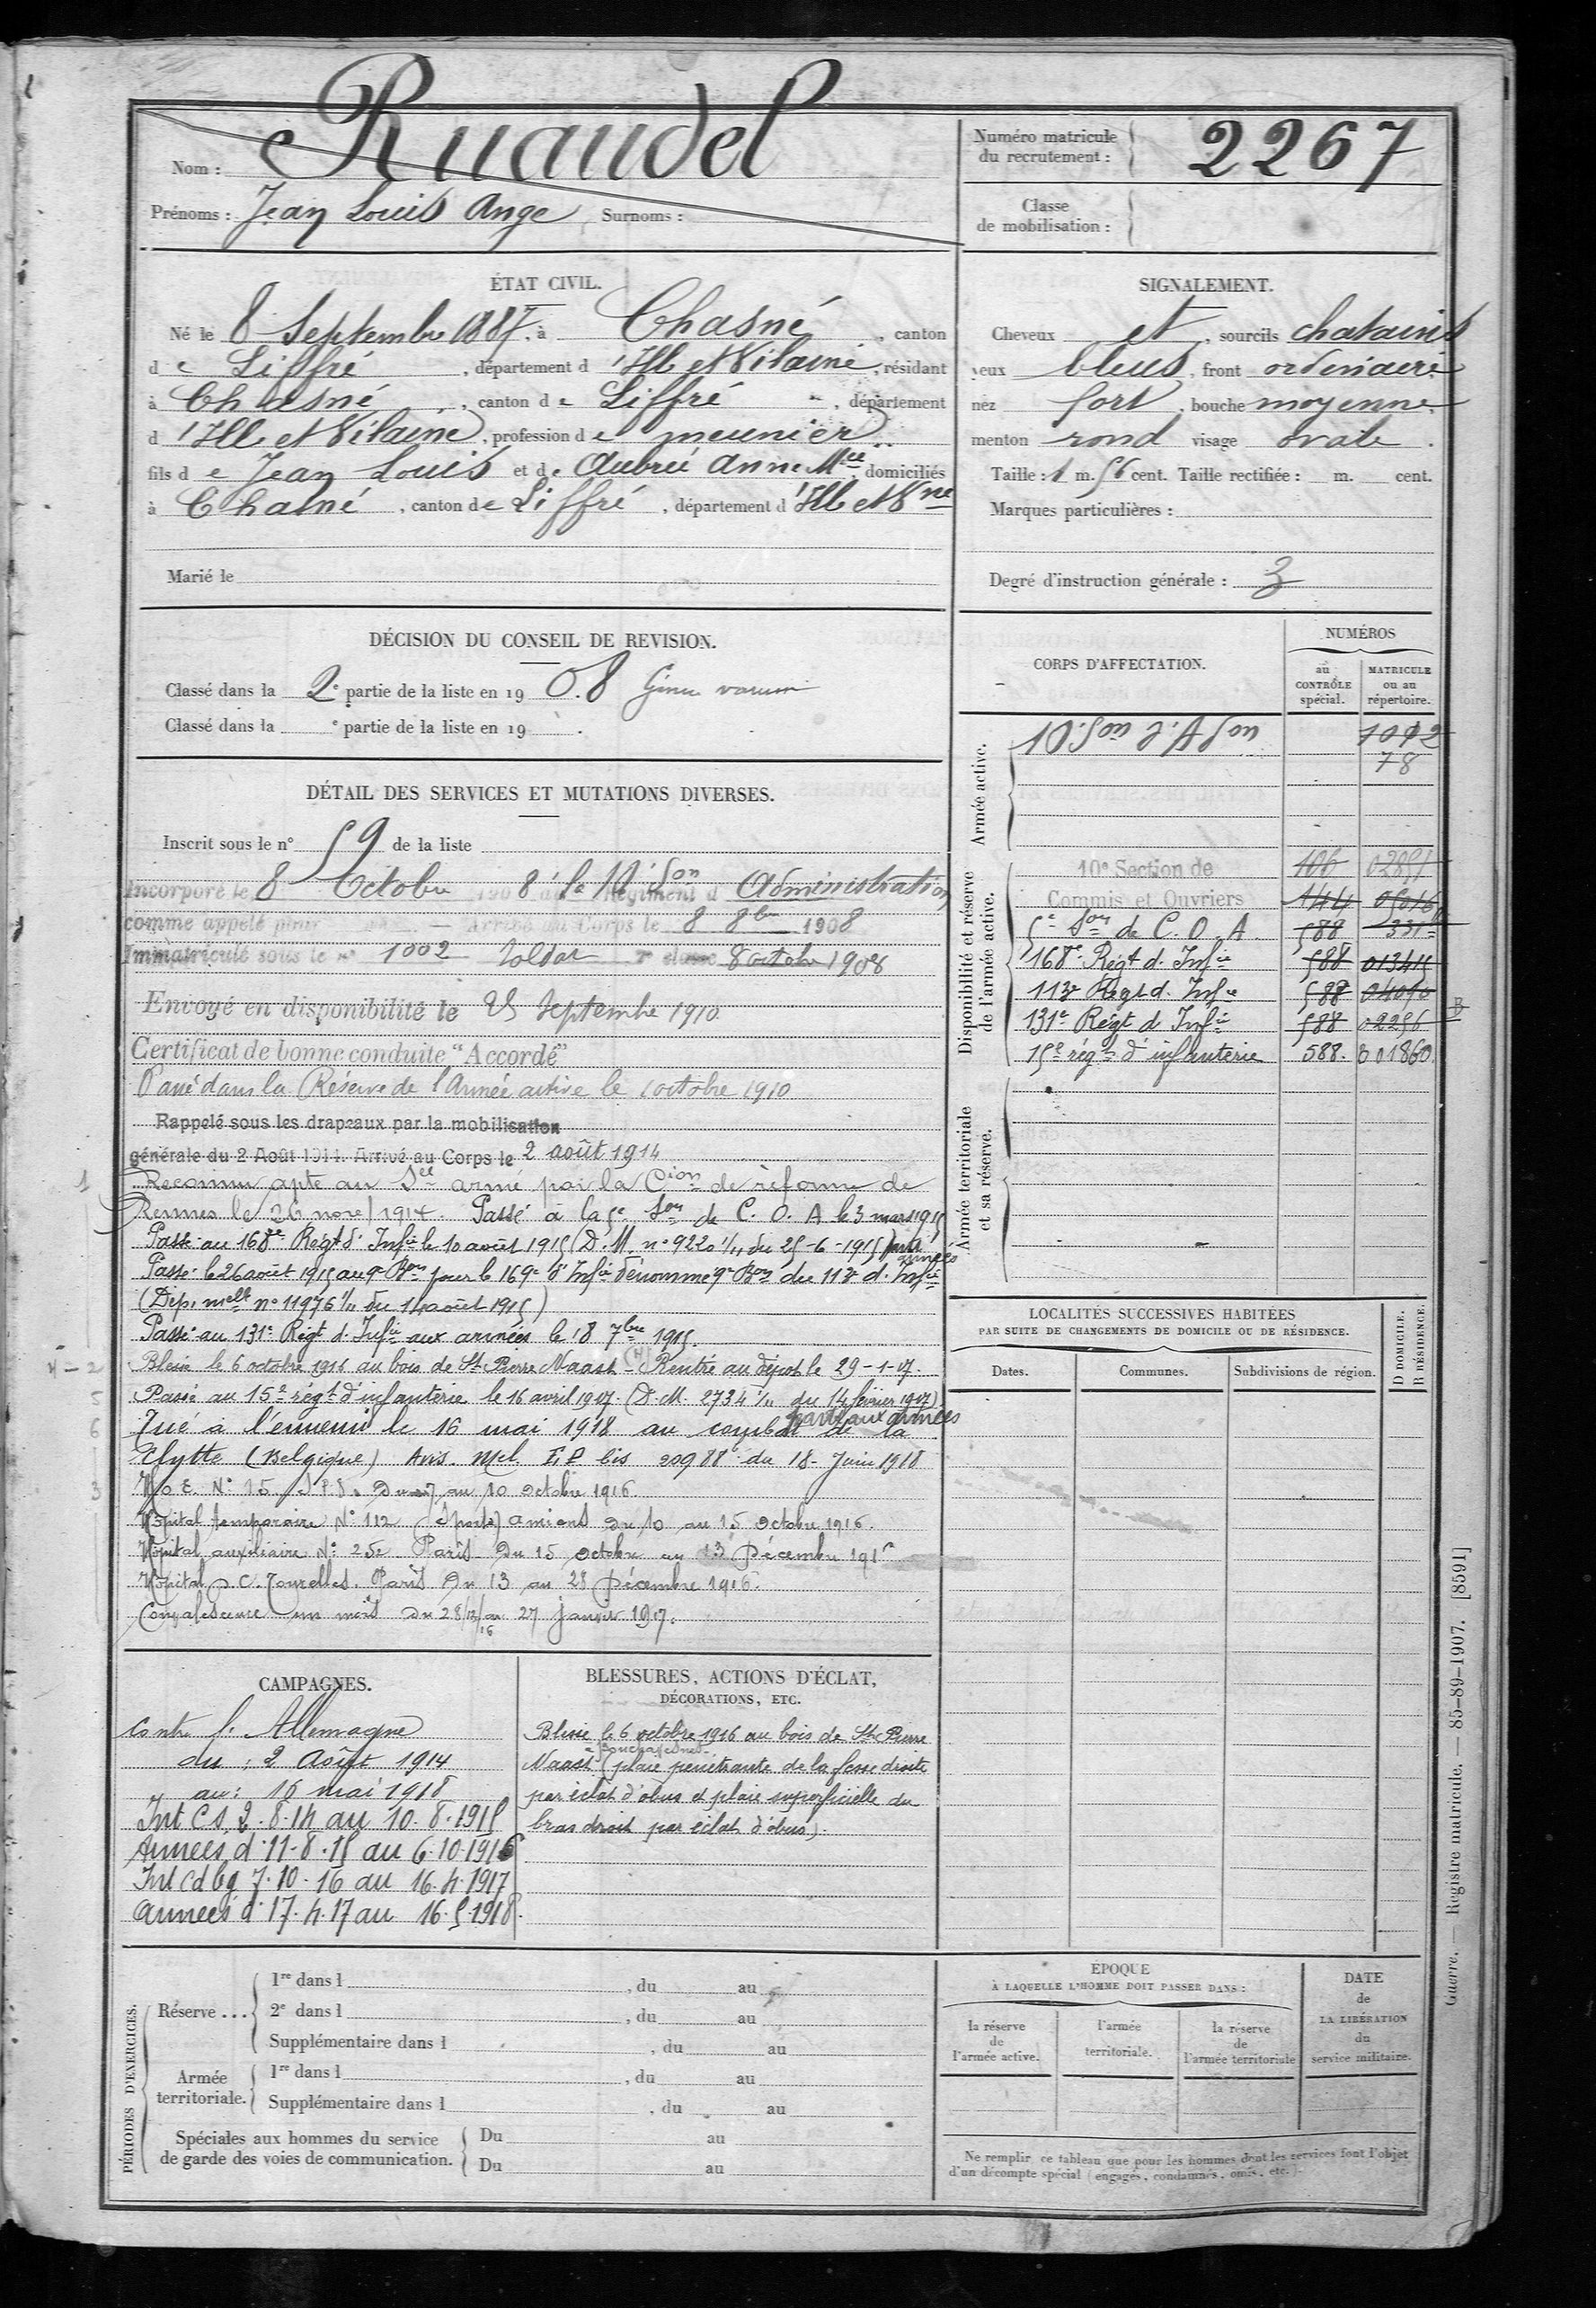 Nom : Ruaudel
Prénoms : Jean Louis Ange Surnoms :
Numéro matricule du recrutement : 2267
Classe de mobilisation :
ÉTAT CIVIL.
Né le 8 Septembre 1887, à Chasné, canton
de Liffré, département d'Ille et Vilaine, résidant
à Chasné, canton de Liffré, département
d'Ille et Vilaine, profession de meunier
fils de Jean Louis et de Aubrée Anne Mie domiciliés
à Chasné, canton de Liffré, département d'Ille et Vne
Marié le
SIGNALEMENT.
Cheveux et, sourcils chatains
yeux bleus, front ordinaire
nez fort, bouche moyenne,
menton rond visage ovale.
Taille : 1 m. 56 cent. Taille rectifiée : m. cent.
Marques particulières :
Degré d'instruction générale : 3
DÉCISION DU CONSEIL DE REVISION.
Classé dans la 2e partie de la liste en 1908.
Classé dans la e partie de la liste en 19 .
DÉTAIL DES SERVICES ET MUTATIONS DIVERSES.
Inscrit sous le n° 59 de la liste
Incorporé le 8 Octobre 1908 à la 10e Son Administration
comme appelé pour — Arrivé au Corps le 8 8bre 1908
Immatriculé sous le n° 1002 Soldat 2e classe 8 octobre 1908
Envoyé en disponibilité le 25 Septembre 1910
Certificat de bonne conduite "Accordé"
Passé dans la Réserve de l'Armée active le 1 octobre 1910
Rappelé sous les drapeaux par la mobilisation
générale du 2 Août 1914. Arrivé au Corps le 2 août 1914
Reconnu apte au Sce armé par la Cion de réforme de
Rennes le 26 nove 1914. Passé à la 5e Son de C. O. A le 3 mars 1915
Passé au 168e Régt d'Infie le 10 août 1915 (D. M. n° 9220 1/11 du 25-6-1915)
Passé le 26 août 1915 au 9e Bon pour le 169e d'Infie dénommé 9e Bon du 113e d'Infie
(Dép. melle n° 11976 1/11 du 14 août 1915)
Passé au 131e Régt d'Infie aux armées le 18 7bre 1915.
Blessé le 6 octobre 1916 au bois de St Pierre Waast (H) Rentré au dépôt le 29-1-17.
Passé au 15e régt d'infanterie le 16 avril 1917. (D. M. 2734 1/11 du 14 février 1917)
parti aux armées
Tué à l'ennemi le 16 mai 1918 au combat de la
Clytte (Belgique) Avis. Mel E.P bis 20988 du 18 Juin 1918
H o E. N° 15. S P S. Du 7 au 10 octobre 1916.
Hôpital temporaire N° 112 Amiens du 10 au 15 octobre 1916.
Hôpital auxiliaire N° 252 Paris du 15 octobre au 13 Décembre 1916
Hôpital P. C. Tourelles. Paris du 13 au 28 décembre 1916.
Convalescence un mois du 28/12/16 au 27 janvier 1917.
1
H - 2
5
6
3
CORPS D'AFFECTATION.
NUMÉROS
au CONTRÔLE spécial.
MATRICULE ou au répertoire.
Armée active.
10e Son d'Aon 1002
78
Disponibilité et réserve de l'armée active.
10e Section de 106 02851
Commis et Ouvriers 144 05016
5e Son de C. O. A. 588 331
168e Régt d. Infie 588 013415
113e Régt d. Infie 588 04090
131e Régt d Infie 588 02256
15e régt d'infanterie 588. 001860.
Armée territoriale et sa réserve.
LOCALITÉS SUCCESSIVES HABITÉES
PAR SUITE DE CHANGEMENTS DE DOMICILE OU DE RÉSIDENCE.
Dates. Communes. Subdivisions de région. D DOMICILE. R RÉSIDENCE.
CAMPAGNES.
Contre l'Allemagne
du : 2 Août 1914
au : 16 mai 1918
Int CS 2.8.14 au 10.8.1915
Armées d. 11.8.15 au 6.10.1916
Int Cd bg 7.10.16 au 16.4.1917
Armées d. 17.4.17 au 16.5.1918.
BLESSURES, ACTIONS D'ÉCLAT,
DÉCORATIONS, ETC.
Blessé le 6 octobre 1916 au bois de St Pierre
à Bouchavesnes
Waast (plaie pénétrante de la fesse droite
par éclat d'obus et plaie superficielle du
bras droit par éclat d'obus).
PÉRIODES D'EXERCICES.
Réserve ...
1re dans l , du au
2e dans l , du au
Supplémentaire dans l , du au
Armée territoriale.
1re dans l , du au
Supplémentaire dans l , du au
Spéciales aux hommes du service
de garde des voies de communication.
Du au
Du au
ÉPOQUE
À LAQUELLE L'HOMME DOIT PASSER DANS :
la réserve de l'armée active.
l'armée territoriale.
la réserve de l'armée territoriale
DATE de LA LIBÉRATION du service militaire.
Ne remplir ce tableau que pour les hommes dont les services font l'objet
d'un décompte spécial (engagés, condamnés, omis, etc.).
Guerre. — Registre matricule. — 85-89-1907. [8591]